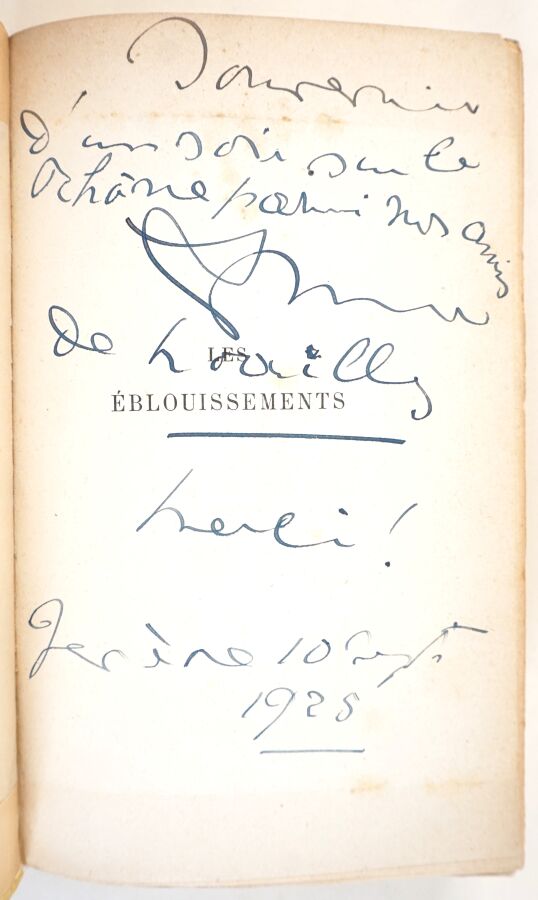 Souvenir
d'un soir sur le
Rhône parmi nos amis
Anna
de Noailles
LES
ÉBLOUISSEMENTS
Merci !
Genève 10 Sept
1925